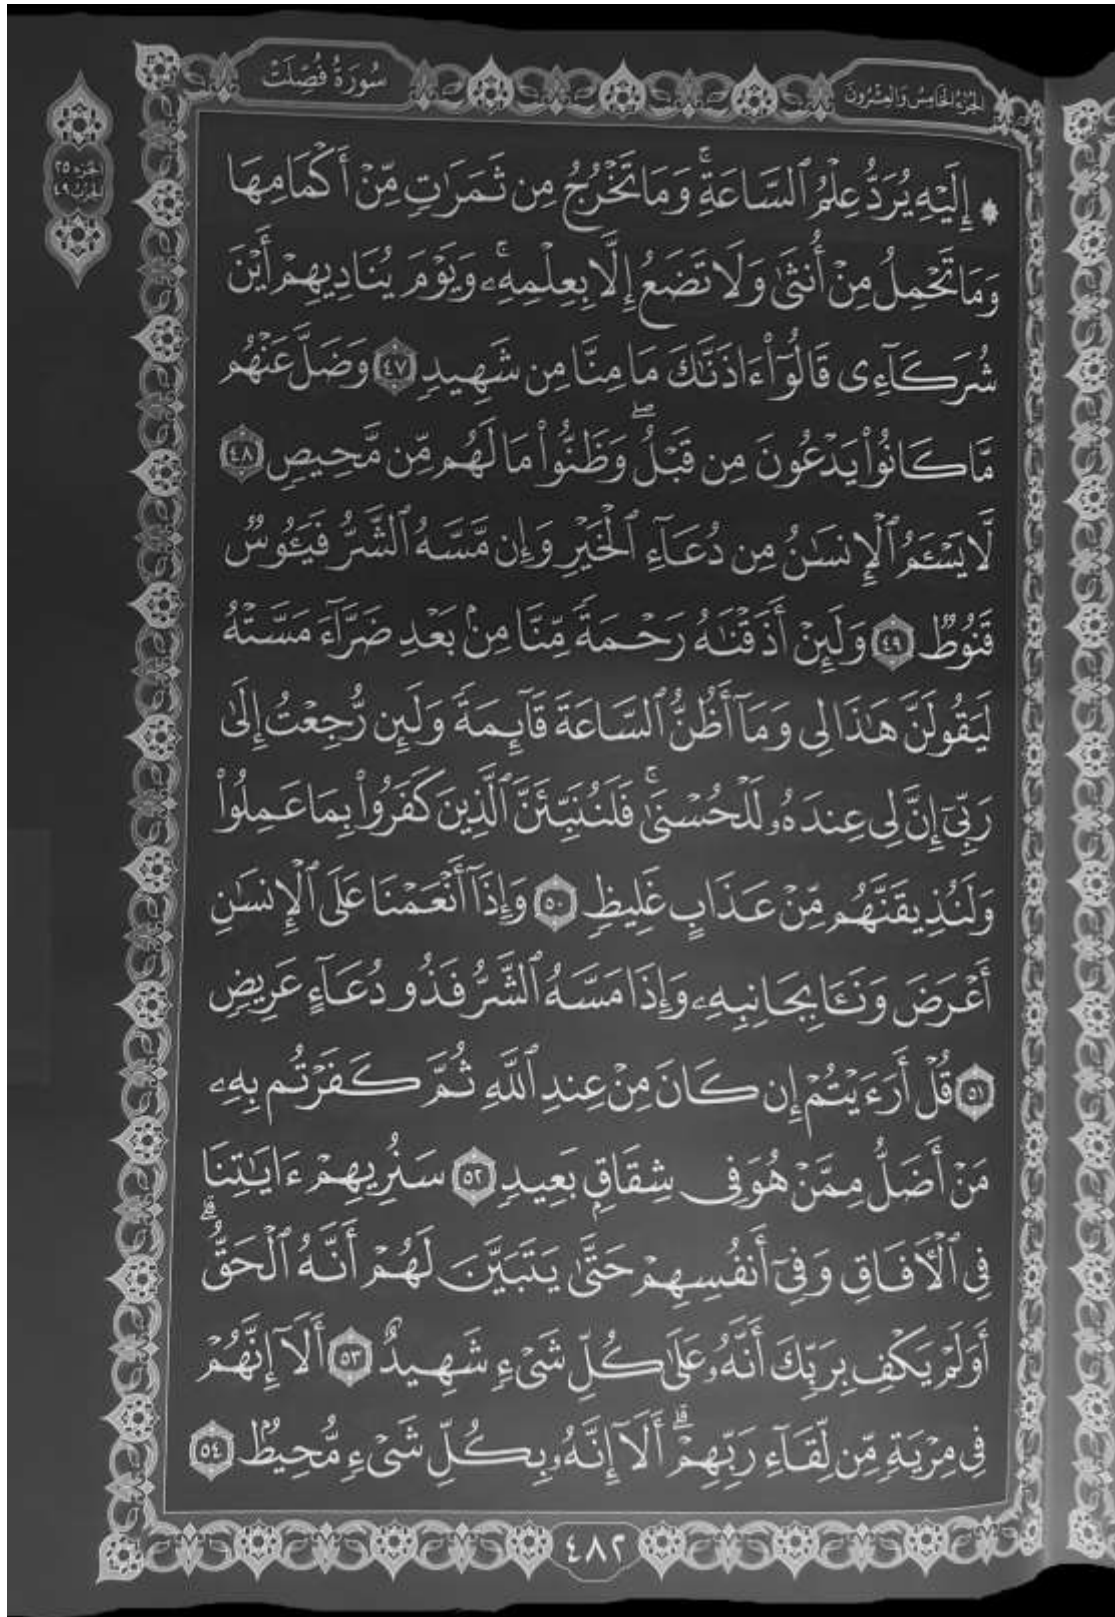 سُورَةُ فُصِّلَتْ
الجُزْءُ الخَامِسُ وَالعِشْرُونَ
الجزء ٢٥
الحزب ٤٩
۞ إِلَيْهِ يُرَدُّ عِلْمُ ٱلسَّاعَةِۚ وَمَا تَخْرُجُ مِن ثَمَرَٰتٍ مِّنْ أَكْمَامِهَا
وَمَا تَحْمِلُ مِنْ أُنثَىٰ وَلَا تَضَعُ إِلَّا بِعِلْمِهِۦۚ وَيَوْمَ يُنَادِيهِمْ أَيْنَ
شُرَكَآءِى قَالُوٓا۟ ءَاذَنَّٰكَ مَا مِنَّا مِن شَهِيدٍ ٤٧ وَضَلَّ عَنْهُم
مَّا كَانُوا۟ يَدْعُونَ مِن قَبْلُۖ وَظَنُّوا۟ مَا لَهُم مِّن مَّحِيصٍ ٤٨
لَّا يَسْـَٔمُ ٱلْإِنسَٰنُ مِن دُعَآءِ ٱلْخَيْرِ وَإِن مَّسَّهُ ٱلشَّرُّ فَيَـُٔوسٌ
قَنُوطٌ ٤٩ وَلَئِنْ أَذَقْنَٰهُ رَحْمَةً مِّنَّا مِنۢ بَعْدِ ضَرَّآءَ مَسَّتْهُ
لَيَقُولَنَّ هَٰذَا لِى وَمَآ أَظُنُّ ٱلسَّاعَةَ قَآئِمَةً وَلَئِن رُّجِعْتُ إِلَىٰ
رَبِّىٓ إِنَّ لِى عِندَهُۥ لَلْحُسْنَىٰۚ فَلَنُنَبِّئَنَّ ٱلَّذِينَ كَفَرُوا۟ بِمَا عَمِلُوا۟
وَلَنُذِيقَنَّهُم مِّنْ عَذَابٍ غَلِيظٍ ٥٠ وَإِذَآ أَنْعَمْنَا عَلَى ٱلْإِنسَٰنِ
أَعْرَضَ وَنَـَٔا بِجَانِبِهِۦ وَإِذَا مَسَّهُ ٱلشَّرُّ فَذُو دُعَآءٍ عَرِيضٍ
٥١ قُلْ أَرَءَيْتُمْ إِن كَانَ مِنْ عِندِ ٱللَّهِ ثُمَّ كَفَرْتُم بِهِۦ
مَنْ أَضَلُّ مِمَّنْ هُوَ فِى شِقَاقٍۭ بَعِيدٍ ٥٢ سَنُرِيهِمْ ءَايَٰتِنَا
فِى ٱلْـَٔافَاقِ وَفِىٓ أَنفُسِهِمْ حَتَّىٰ يَتَبَيَّنَ لَهُمْ أَنَّهُ ٱلْحَقُّۗ
أَوَلَمْ يَكْفِ بِرَبِّكَ أَنَّهُۥ عَلَىٰ كُلِّ شَىْءٍ شَهِيدٌ ٥٣ أَلَآ إِنَّهُمْ
فِى مِرْيَةٍ مِّن لِّقَآءِ رَبِّهِمْۗ أَلَآ إِنَّهُۥ بِكُلِّ شَىْءٍ مُّحِيطٌۢ ٥٤
٤٨٢